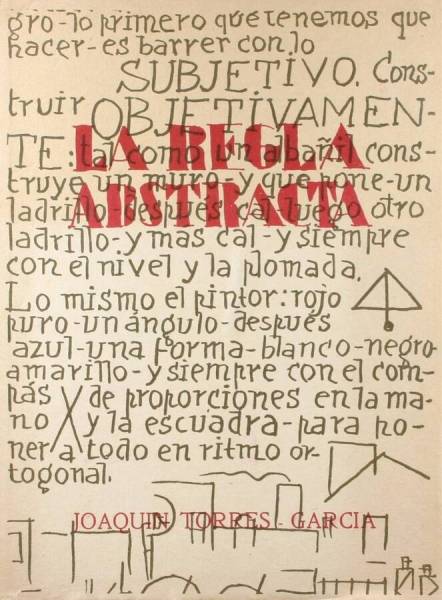 gro-lo primero que tenemos que
hacer-es barrer con lo
SUBJETIVO. Cons-
truir OBJETIVAMEN-
TE: tal como un albañil cons-
truye un muro-y que pone-un
ladrillo-después cal-luego otro
ladrillo-y mas cal-y siempre
con el nivel y la plomada.
Lo mismo el pintor: rojo
puro-un ángulo-después
azul-una forma-blanco-negro
amarillo-y siempre con el com-
pás y de proporciones en la ma-
no y la escuadra-para po-
ner a todo en ritmo or-
togonal.
LA REGLA
ABSTRACTA
JOAQUIN TORRES-GARCIA